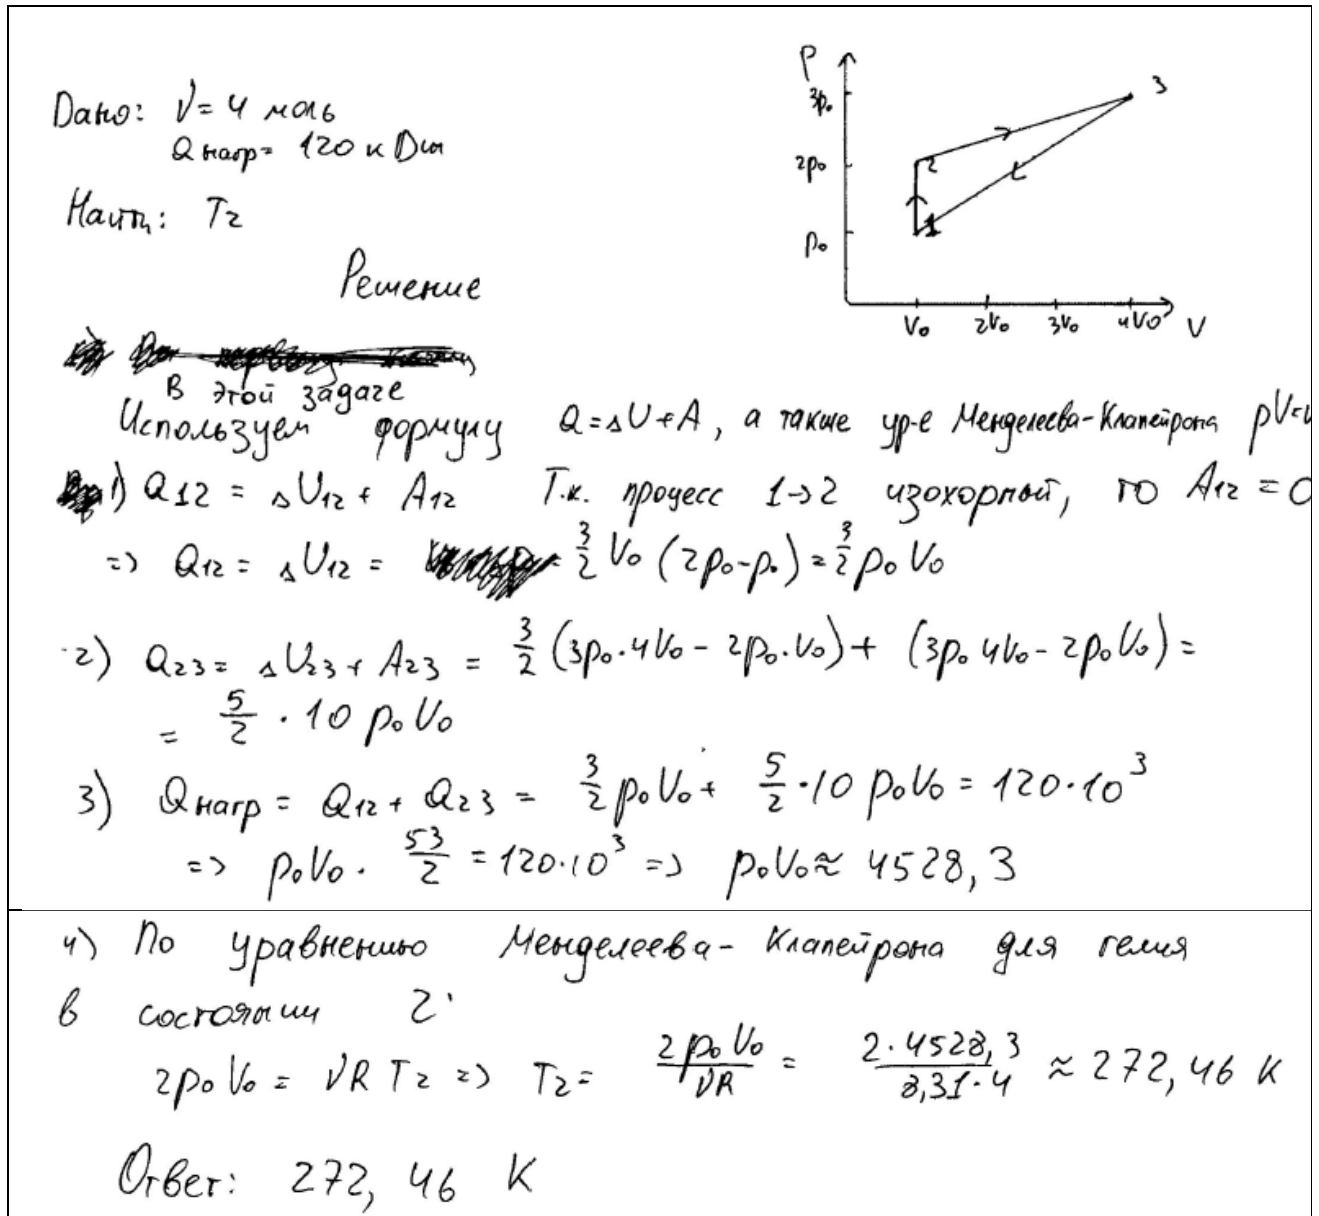 Дано: ν = 4 моль
Qнагр = 120 кДж
Найти: T2
P
3p0
2p0
p0
V0 2V0 3V0 4V0 V
1
2
3
Решение
В этой задаче
Используем формулу Q = ΔU + A, а также ур-е Менделеева-Клапейрона pV=
1) Q12 = ΔU12 + A12 Т.к. процесс 1→2 изохорный, то A12 = 0
=> Q12 = ΔU12 = = 3/2 V0 (2p0 - p0) = 3/2 p0 V0
2) Q23 = ΔU23 + A23 = 3/2 (3p0·4V0 - 2p0·V0) + (3p0 4V0 - 2p0V0) =
= 5/2 · 10 p0 V0
3) Qнагр = Q12 + Q23 = 3/2 p0V0 + 5/2 ·10 p0V0 = 120·10^3
=> p0V0 · 53/2 = 120·10^3 => p0V0 ≈ 4528,3
4) По уравнению Менделеева-Клапейрона для гелия
в состоянии 2:
2p0 V0 = νR T2 => T2 = 2p0 V0/νR = 2·4528,3/8,31·4 ≈ 272,46 К
Ответ: 272,46 К